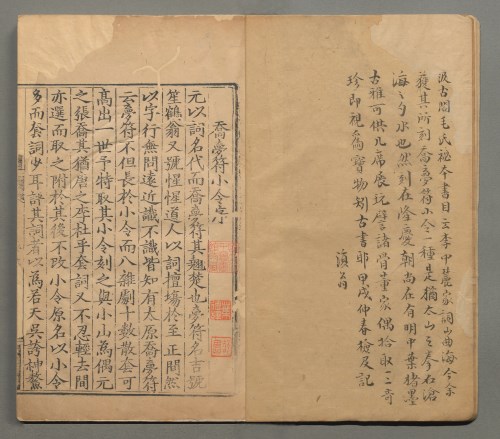 汲古閣毛氏祕本書目云李中麓家詞山曲海今余
獲其所刻喬夢符小令一種是猶太山之拳石滄
海之勺水也然刻在隆慶朝尚在有明中葉楮墨
古雅可供几席展玩譬諸骨董家偶拾一二奇
珍即視為寶物矧古書耶甲戌仲春檢及記
翁
喬夢符小令序
元以詞名代而喬夢符其翹楚也夢符名吉號
笙鶴翁又號惺惺道人以詞擅場於至正間然
以字行無問遠近識不識皆知有太原喬夢符
云夢符不但長於小令而八雜劇十數散套可
高出一世予特取其小令刻之與小山為偶元
之張喬其猶唐之李杜乎套詞又不忍輕去間
亦選而取之附於其後不改小令原名以小令
多而套詞少耳評其詞者以為若天吳誇神鰲